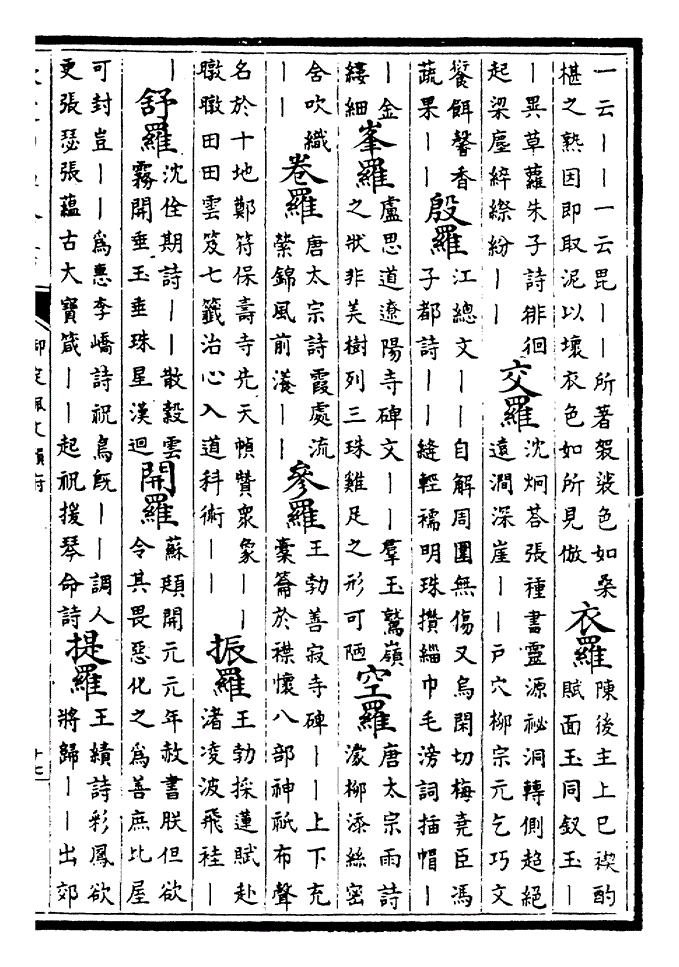 一云丨丨一云毘丨丨所著袈裟色如桑
椹之熟因即取泥以壞衣色如所見倣
衣羅
陳後主上巳禊酌
賦面玉同釵玉丨
丨異草蘿朱子詩徘徊
起梁塵綷縩紛丨丨
交羅
沈炯荅張種書靈源祕洞轉側超絕
遠澗深崖丨丨戸穴柳宗元乞巧文
餐餌馨香
蔬果丨丨
殷羅
江總文丨丨自解周圍無傷又烏閑切梅堯臣馮
子都詩丨丨丨縫輕襦明珠攢緇巾毛滂詞插帽丨
丨金
縷細
峯羅
盧思道遼陽寺碑文丨丨羣玉鷲嶺
之狀非美樹列三珠雞足之形可陋
空羅
唐太宗雨詩
濛柳添絲密
舍吹織
丨丨
卷羅
唐太宗詩霞處流
縈錦風前瀁丨丨
參羅
王勃善寂寺碑丨丨上下充
橐籥於襟懷八部神祇布聲
名於十地鄭符保壽寺先天幀贊衆象丨丨
暾暾田田雲笈七籤治心入道科術丨丨
振羅
王勃採蓮賦赴
渚凌波飛袿丨
丨
舒羅
沈佺期詩丨丨散縠雲
霧開垂玉垂珠星漢迴
開羅
蘇頲開元元年赦書朕但欲
令其畏惡化之為善庶比屋
可封豈丨丨為惠李嶠詩祝鳥旣丨丨調人
更張瑟張蘊古大寶箴丨丨起祝援琴命詩
提羅
王績詩彩鳳欲
將歸丨丨出郊